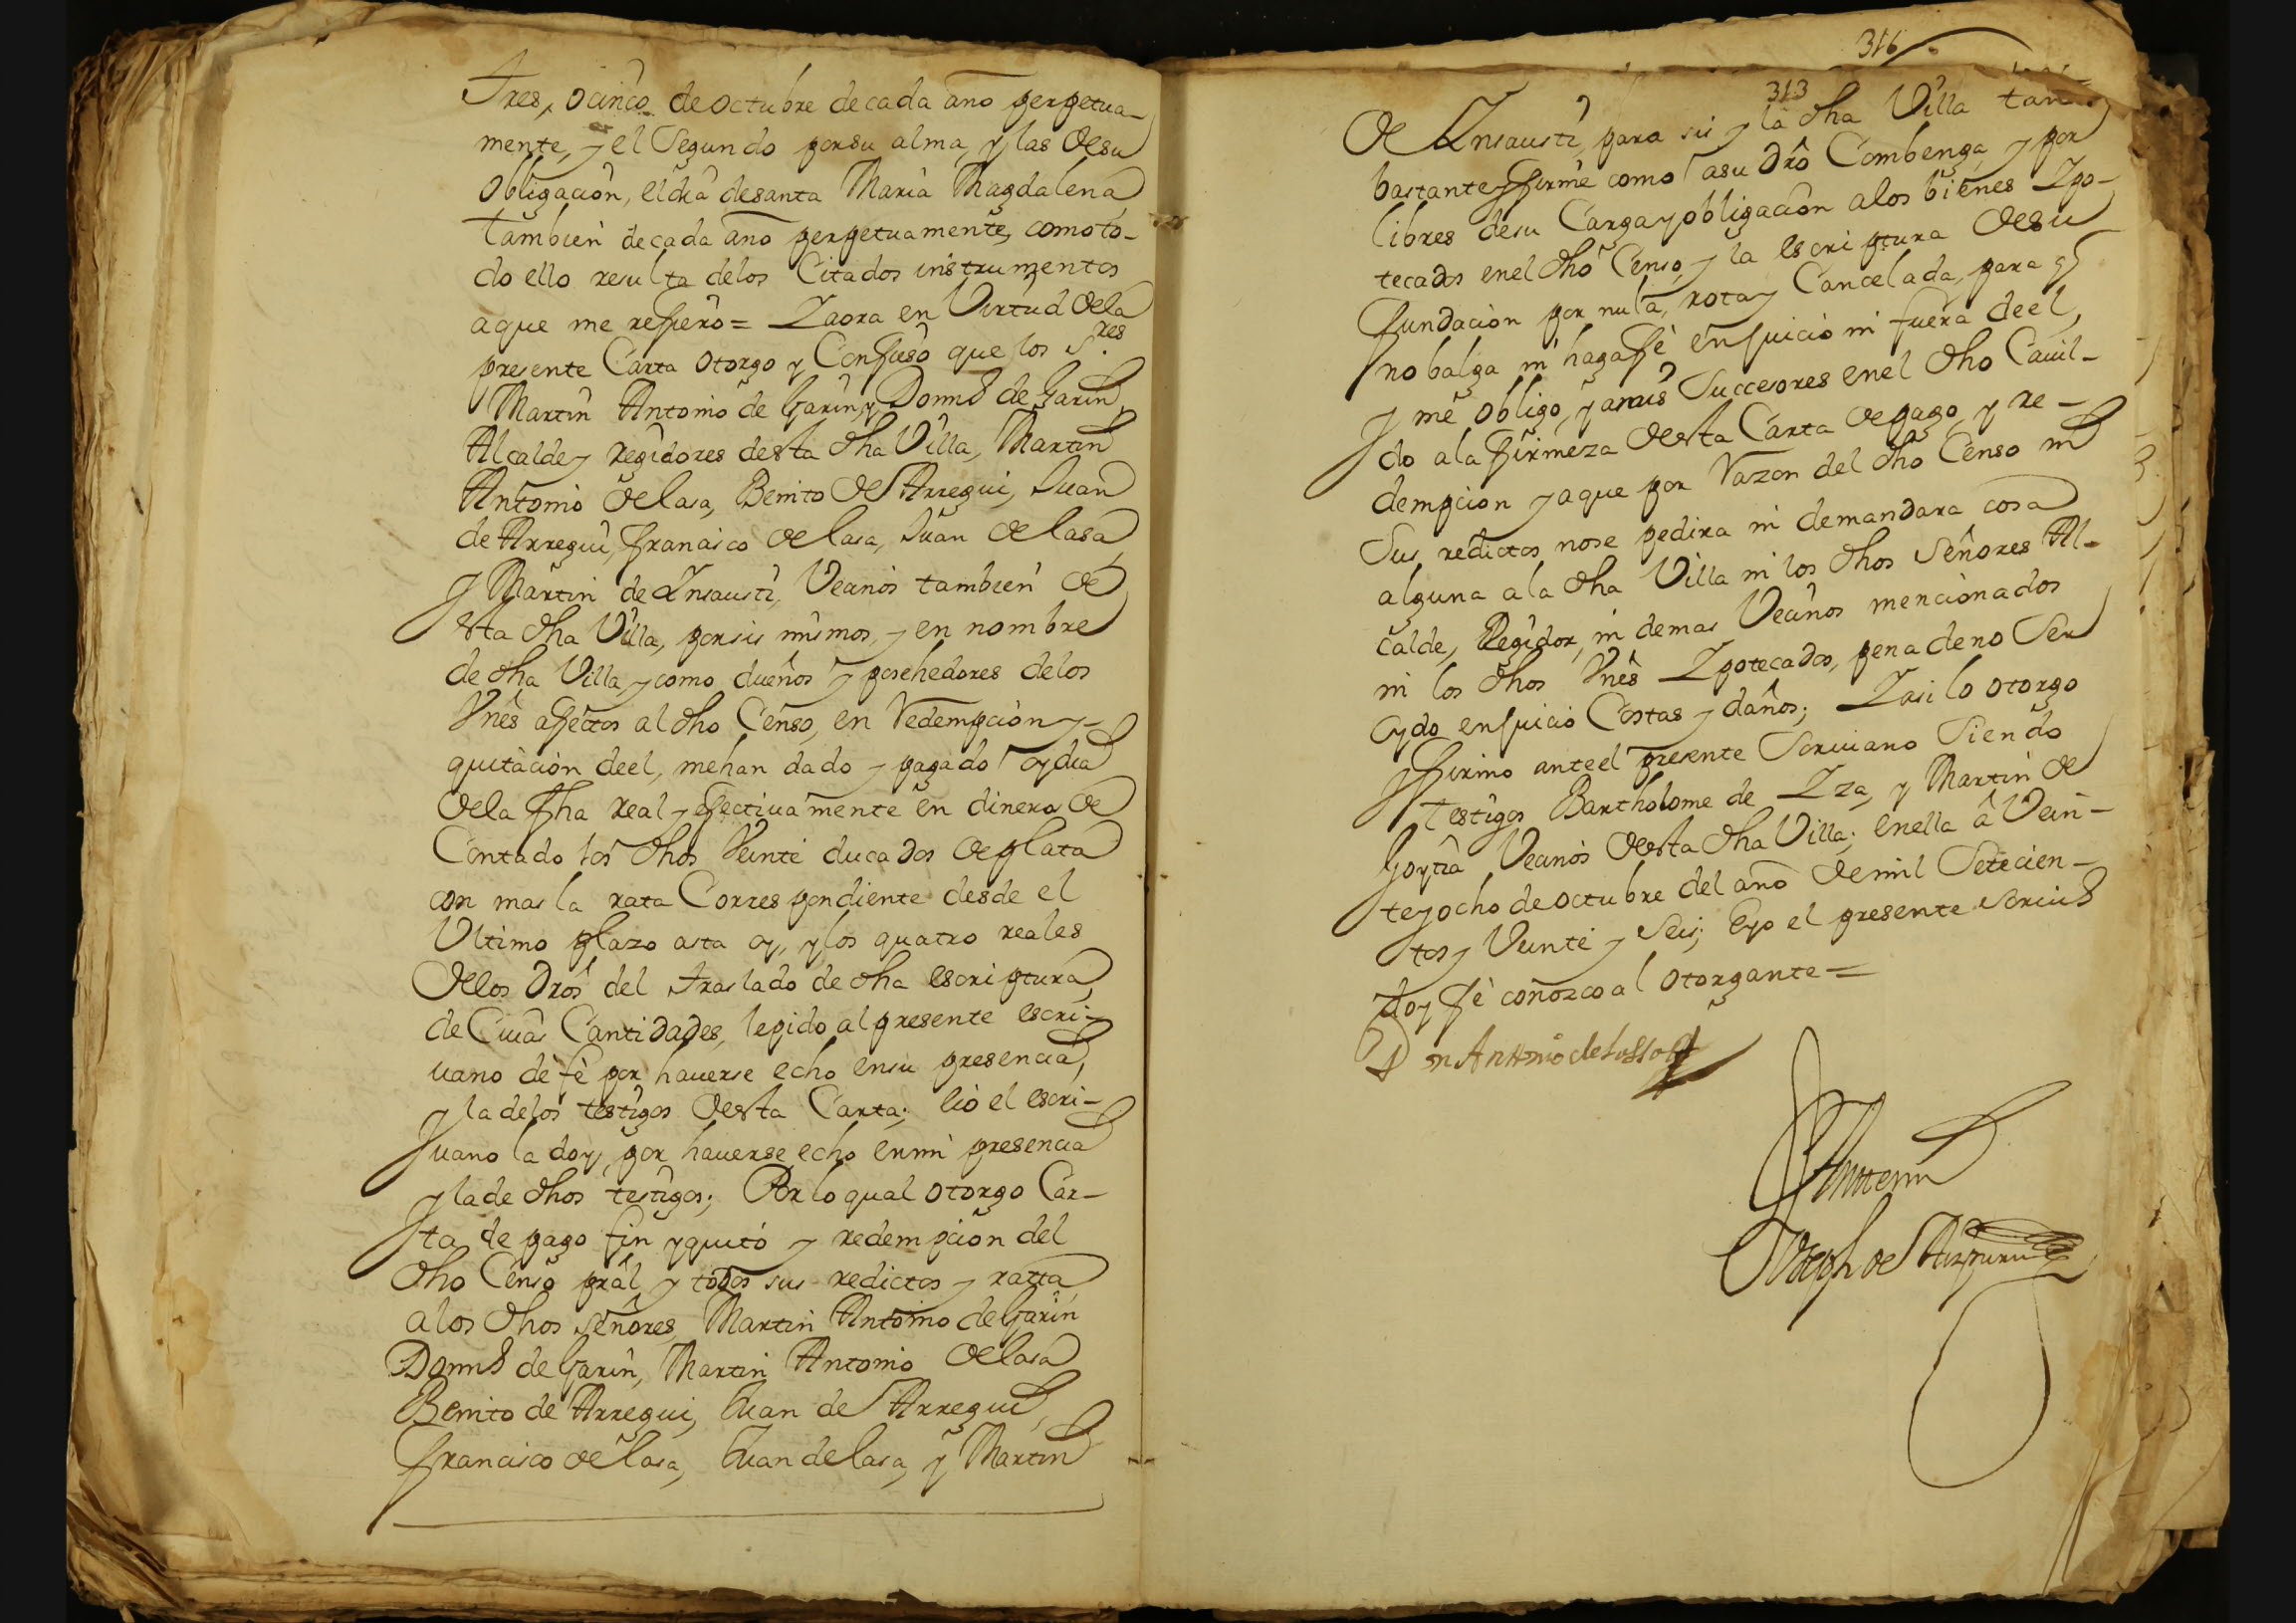 Tres, o cinco de octubre de cada año perpetua-
mente, y el Segundo por su alma, y las de su
Obligacion, el dia de santa Maria Magdalena
tambien de cada año perpetuamente, como to-
do ello resulta delos Citados instrumentos
a que me refiero = Y aora en Virtud dela
presente Carta otorgo y Confieso que los S.res
Martin Antonio de Garin, y Domin.o de Garin,
Alcalde y regidores desta dha Villa, Martin
Antonio de lasa, Benito de Arregui, Juan
de Arregui, francisco de lasa, Juan de lasa
y Martin de Ynsausti, Vecinos tambien de
esta dha Villa, por sis mismos, y en nombre
de dha Villa, y como dueños y posehedores delos
Vnes afectos al dho Censo, en redempcion y
quitacion deel, mehan dado y pagado oy dia
dela fha real y efectivamente en dinero de
Contado los dhos Veinte ducados de plata
con mas la rata Correspondiente desde el
Ultimo plazo asta oy, y los quatro reales
delos dros del traslado de dha escriptura,
de Cuias Cantidades, le pido al presente escri-
uano de fè por hauerse echo en su presencia,
y la delos testigos desta Carta; è io el escri-
uano la doy, por hauerse echo en mi presencia
y la de dhos testigos; Por lo qual otorgo Car-
ta de pago fin y quito y redempcion del
dho Censo pral y todos sus redictos y ratta
a los dhos señores, Martin Antonio de Garin
Domin.o de Garin, Martin Antonio de lasa
Benito de Arregui, Juan de Arregui,
francisco de lasa, Juan de lasa, y Martin
316
313
de Ynsausti, para sis y la dha Villa tan
bastante y firme como a su dro Combenga, y por
libres de su Carga y obligacion a los bienes Ypo-
tecados en el dho Censo, y la escriptura de su
fundacion por nula, rota y Cancelada, para q
no balga ni haga fè en juicio ni fuera de el,
y me obligo, y a mis Succesores en el dho Cauil-
do a la firmeza desta Carta de pago, y re-
dempcion y a que por razon del dho Censo ni
sus redictos no se pedira ni demandara cosa
alguna a la dha Villa ni los dhos señores Al-
calde, Regidor, ni demas Vecinos mencionados
ni los dhos Vnes Ypotecados, pena de no Ser
oydo en juicio Costas y daños; Y asi lo otorgo
y firmo ante el presente Scriuano Siendo
testigos Bartholome de Yza, y Martin de
Goytia Vecinos desta dha Villa; en ella â Vein-
te y ocho de octubre del año de mil Setecien-
tos y Veinte y Seis; E yo el presente scriu.o
doy fè coñozco al otorgante =
Don Antonio de
Ante mi
Joseph de Aizpuru